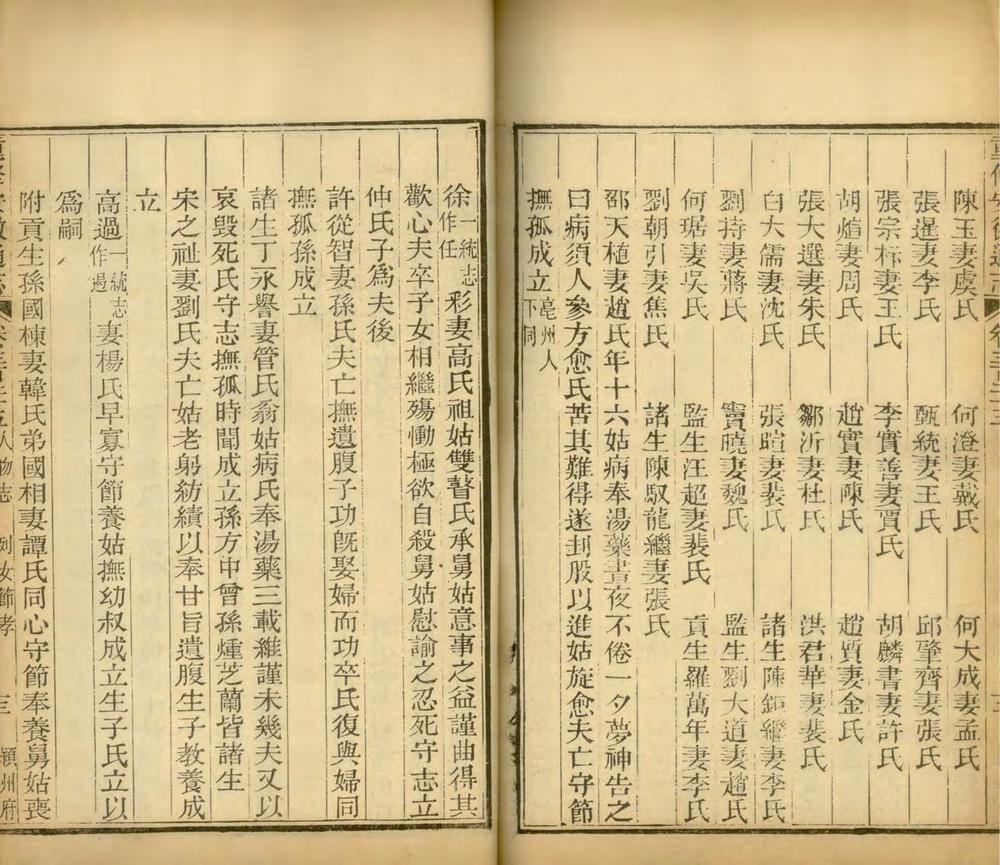 陳玉妻虞氏 何澄妻戴氏 何大成妻孟氏
張暹妻李氏 甄統妻王氏 邱肇齊妻張氏
張宗標妻王氏 李實善妻賈氏 胡麟書妻許氏
胡妻周氏 趙實妻陳氏 趙質妻金氏
張大選妻朱氏 鄒沂妻杜氏 洪君華妻裴氏
白大儒妻沈氏 張暄妻裴氏 諸生陳繼妻李氏
劉持妻蔣氏 竇曉妻魏氏 監生劉大道妻趙氏
何琚妻吳氏 監生汪超妻裴氏 貢生羅萬年妻李氏
劉朝引妻焦氏 諸生陳馭龍繼妻張氏
邵天植妻趙氏年十六姑病奉湯藥晝夜不倦一夕夢神告之
曰病須人參方愈氏苦其難得遂刲股以進姑旋愈夫亡守節
撫孤成立亳州人下同
徐一統志作任彩妻高氏祖姑雙瞽氏承舅姑意事之益謹曲得其
歡心夫卒子女相繼殤慟極欲自殺舅姑慰諭之忍死守志立
仲氏子爲夫後
許從智妻孫氏夫亡撫遺腹子功旣娶婦而功卒氏復與婦同
撫孤孫成立
諸生丁永譽妻管氏翁姑病氏奉湯藥三載維謹未幾夫又以
哀毀死氏守志撫孤時聞成立孫方中曾孫煄芝蘭皆諸生
宋之祉妻劉氏夫亡姑老躬紡績以奉甘旨遺腹生子教養成
立
高過一統志作過妻楊氏早寡守節養姑撫幼叔成立生子氏立以
爲嗣
附貢生孫國棟妻韓氏弟國相妻譚氏同心守節奉養舅姑喪
人物志 列女節孝 三 潁州府